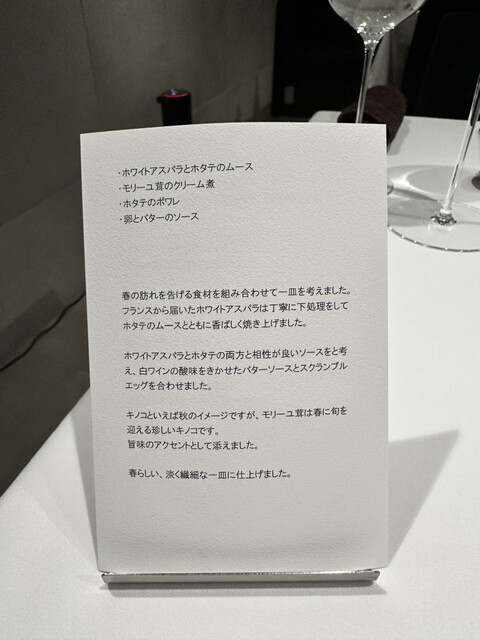 ・ホワイトアスパラとホタテのムース
・モリーユ茸のクリーム煮
・ホタテのポワレ
・卵とバターのソース
春の訪れを告げる食材を組み合わせて一皿を考えました。
フランスから届いたホワイトアスパラは丁寧に下処理をして
ホタテのムースとともに香ばしく焼き上げました。
ホワイトアスパラとホタテの両方と相性が良いソースをと考
え、白ワインの酸味をきかせたバターソースとスクランブル
エッグを合わせました。
キノコといえば秋のイメージですが、モリーユ茸は春に旬を
迎える珍しいキノコです。
旨味のアクセントとして添えました。
春らしい、淡く繊細な一皿に仕上げました。